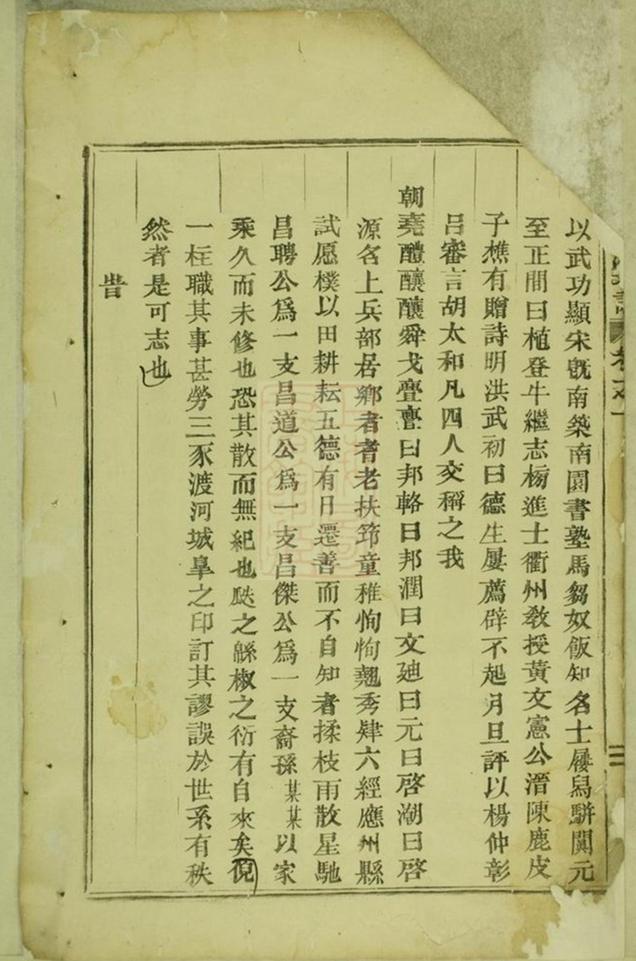 以武功顯宋旣南築南園書塾馬芻奴飯知名士屨舄駢闐元
至正間曰植登牛繼志榜進士衢州敎授黃文憲公溍陳鹿皮
子樵有贈詩明洪武初曰德生屢薦辟不起月旦評以楊仲彰
呂審言胡太和凡四人交稱之我
朝堯醴釀釀舜戈亹亹曰邦輅曰邦潤曰文廸曰元曰啓潮曰啓
源名上兵部居鄉者耆老扶筇童稚恂恂翹秀肄六經應州縣
試愿樸以田耕耘五德有日遷善而不自知者揉枝雨散星馳
昌聘公爲一支昌道公爲一支昌傑公爲一支裔孫某某以家
乘久而未修也恐其散而無紀也瓞之緜椒之衍有自來矣俔
一柱職其事甚勞三豕渡河城皐之印訂其謬誤於世系有秩
然者是可志也
旹